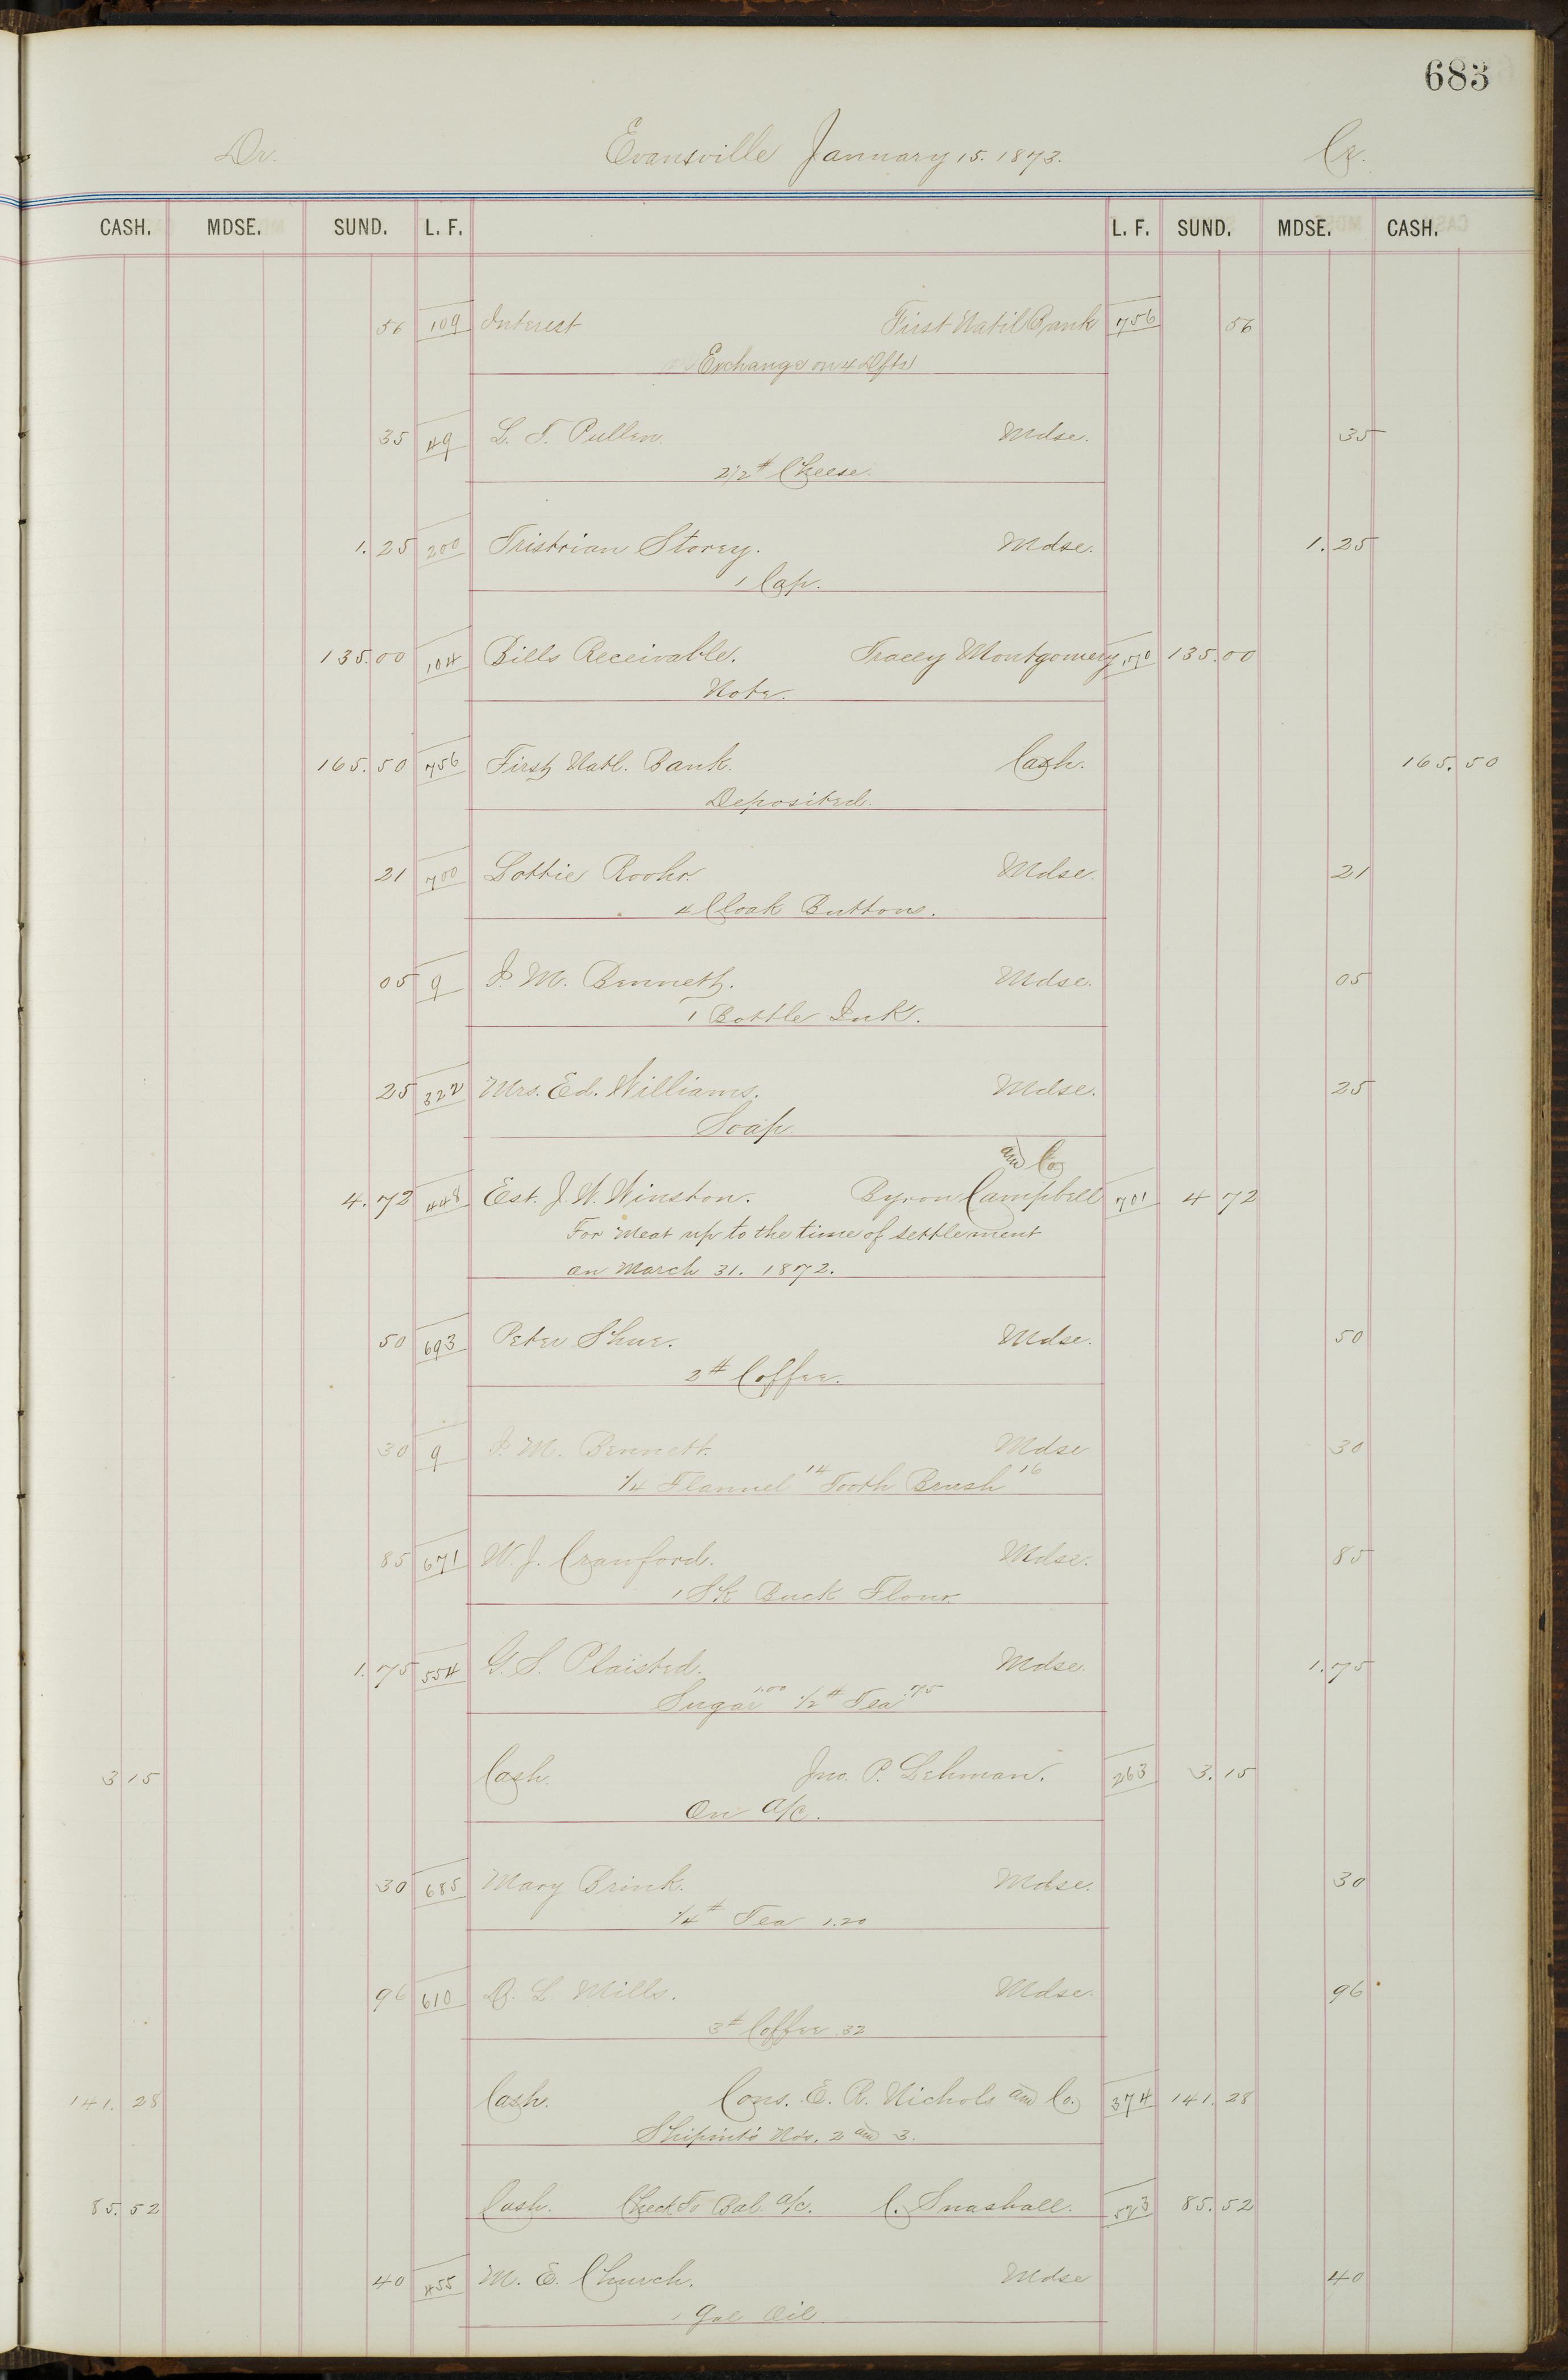 683
Dr. Evansville January 15. 1873. Cr.
CASH. MDSE. SUND. L. F. L. F. SUND. MDSE. CASH.
56 109 Interest First Natil Bank 756 56
Exchange on 4 Dfts
35 49 L. T. Pullen. Mdse. 35
2 1/2 # Cheese.
1.25 200 Tristrian Storey. Mdse. 1.25
1 Cap.
135.00 104 Bills Receivable. Tracey Montgomery 170 135.00
Note.
165.50 756 First Natl. Bank. Cash. 165.50
Deposited.
21 700 Lottie Roohr. Mdse. 21
4 Cloak Buttons.
05 9 I. M. Bennett. Mdse. 05
1 Bottle Ink.
25 322 Mrs. Ed. Williams. Mdse. 25
Soap.
and Co
4.72 448 Est. J. W. Winston. Byron Campbell 701 4 72
For Meat up to the time of settlement
on March 31. 1872.
50 693 Peter Shue. Mdse. 50
2 # Coffee.
30 9 I. M. Bennett. Mdse 30
1/4 Flannel 14 Tooth Brush 16
85 671 W. J. Crawford. Mdse. 85
1 Sk Buck Flour.
1.75 554 G. S. Plaisted. Mdse. 1.75
Sugar 1.00 1/2 # Tea 75
3 15 Cash. Jno. P. Lehman. 263 3.15
On a/c.
30 685 Mary Brink. Mdse. 30
1/4 # Tea 1.20
96 610 D. L. Mills. Mdse. 96
3 # Coffee 32
141.28 Cash. Cons. E. R. Nichols and Co. 374 141.28
Shipmts Nos. 2 and 3.
85.52 Cash. Check To Bal. a/c. C. Snashall. 523 85.52
40 455 M. E. Church. Mdse 40
1 Gal Oil.